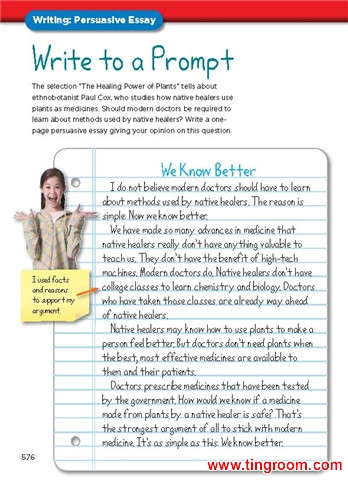 Writing: Persuasive Essay
Write to a Prompt
The selection "The Healing Power of Plants" tells about
ethnobotanist Paul Cox, who studies how native healers use
plants as medicines. Should modern doctors be required to
learn about methods used by native healers? Write a one-
page persuasive essay giving your opinion on this question.
We Know Better
I do not believe modern doctors should have to learn
about methods used by native healers. The reason is
simple: Now we know better.
We have made so many advances in medicine that
native healers really don't have anything valuable to
teach us. They don't have the benefit of high-tech
machines. Modern doctors do. Native healers don't have
college classes to learn chemistry and biology. Doctors
who have taken those classes are already way ahead
of native healers.
Native healers may know how to use plants to make a
person feel better. But doctors don't need plants when
the best, most effective medicines are available to
them and their patients.
Doctors prescribe medicines that have been tested
by the government. How would we know if a medicine
made from plants by a native healer is safe? That's
the strongest argument of all to stick with modern
medicine. It's as simple as this: We know better.
I used facts
and reasons
to support my
argument.
576
www.tingroom.com